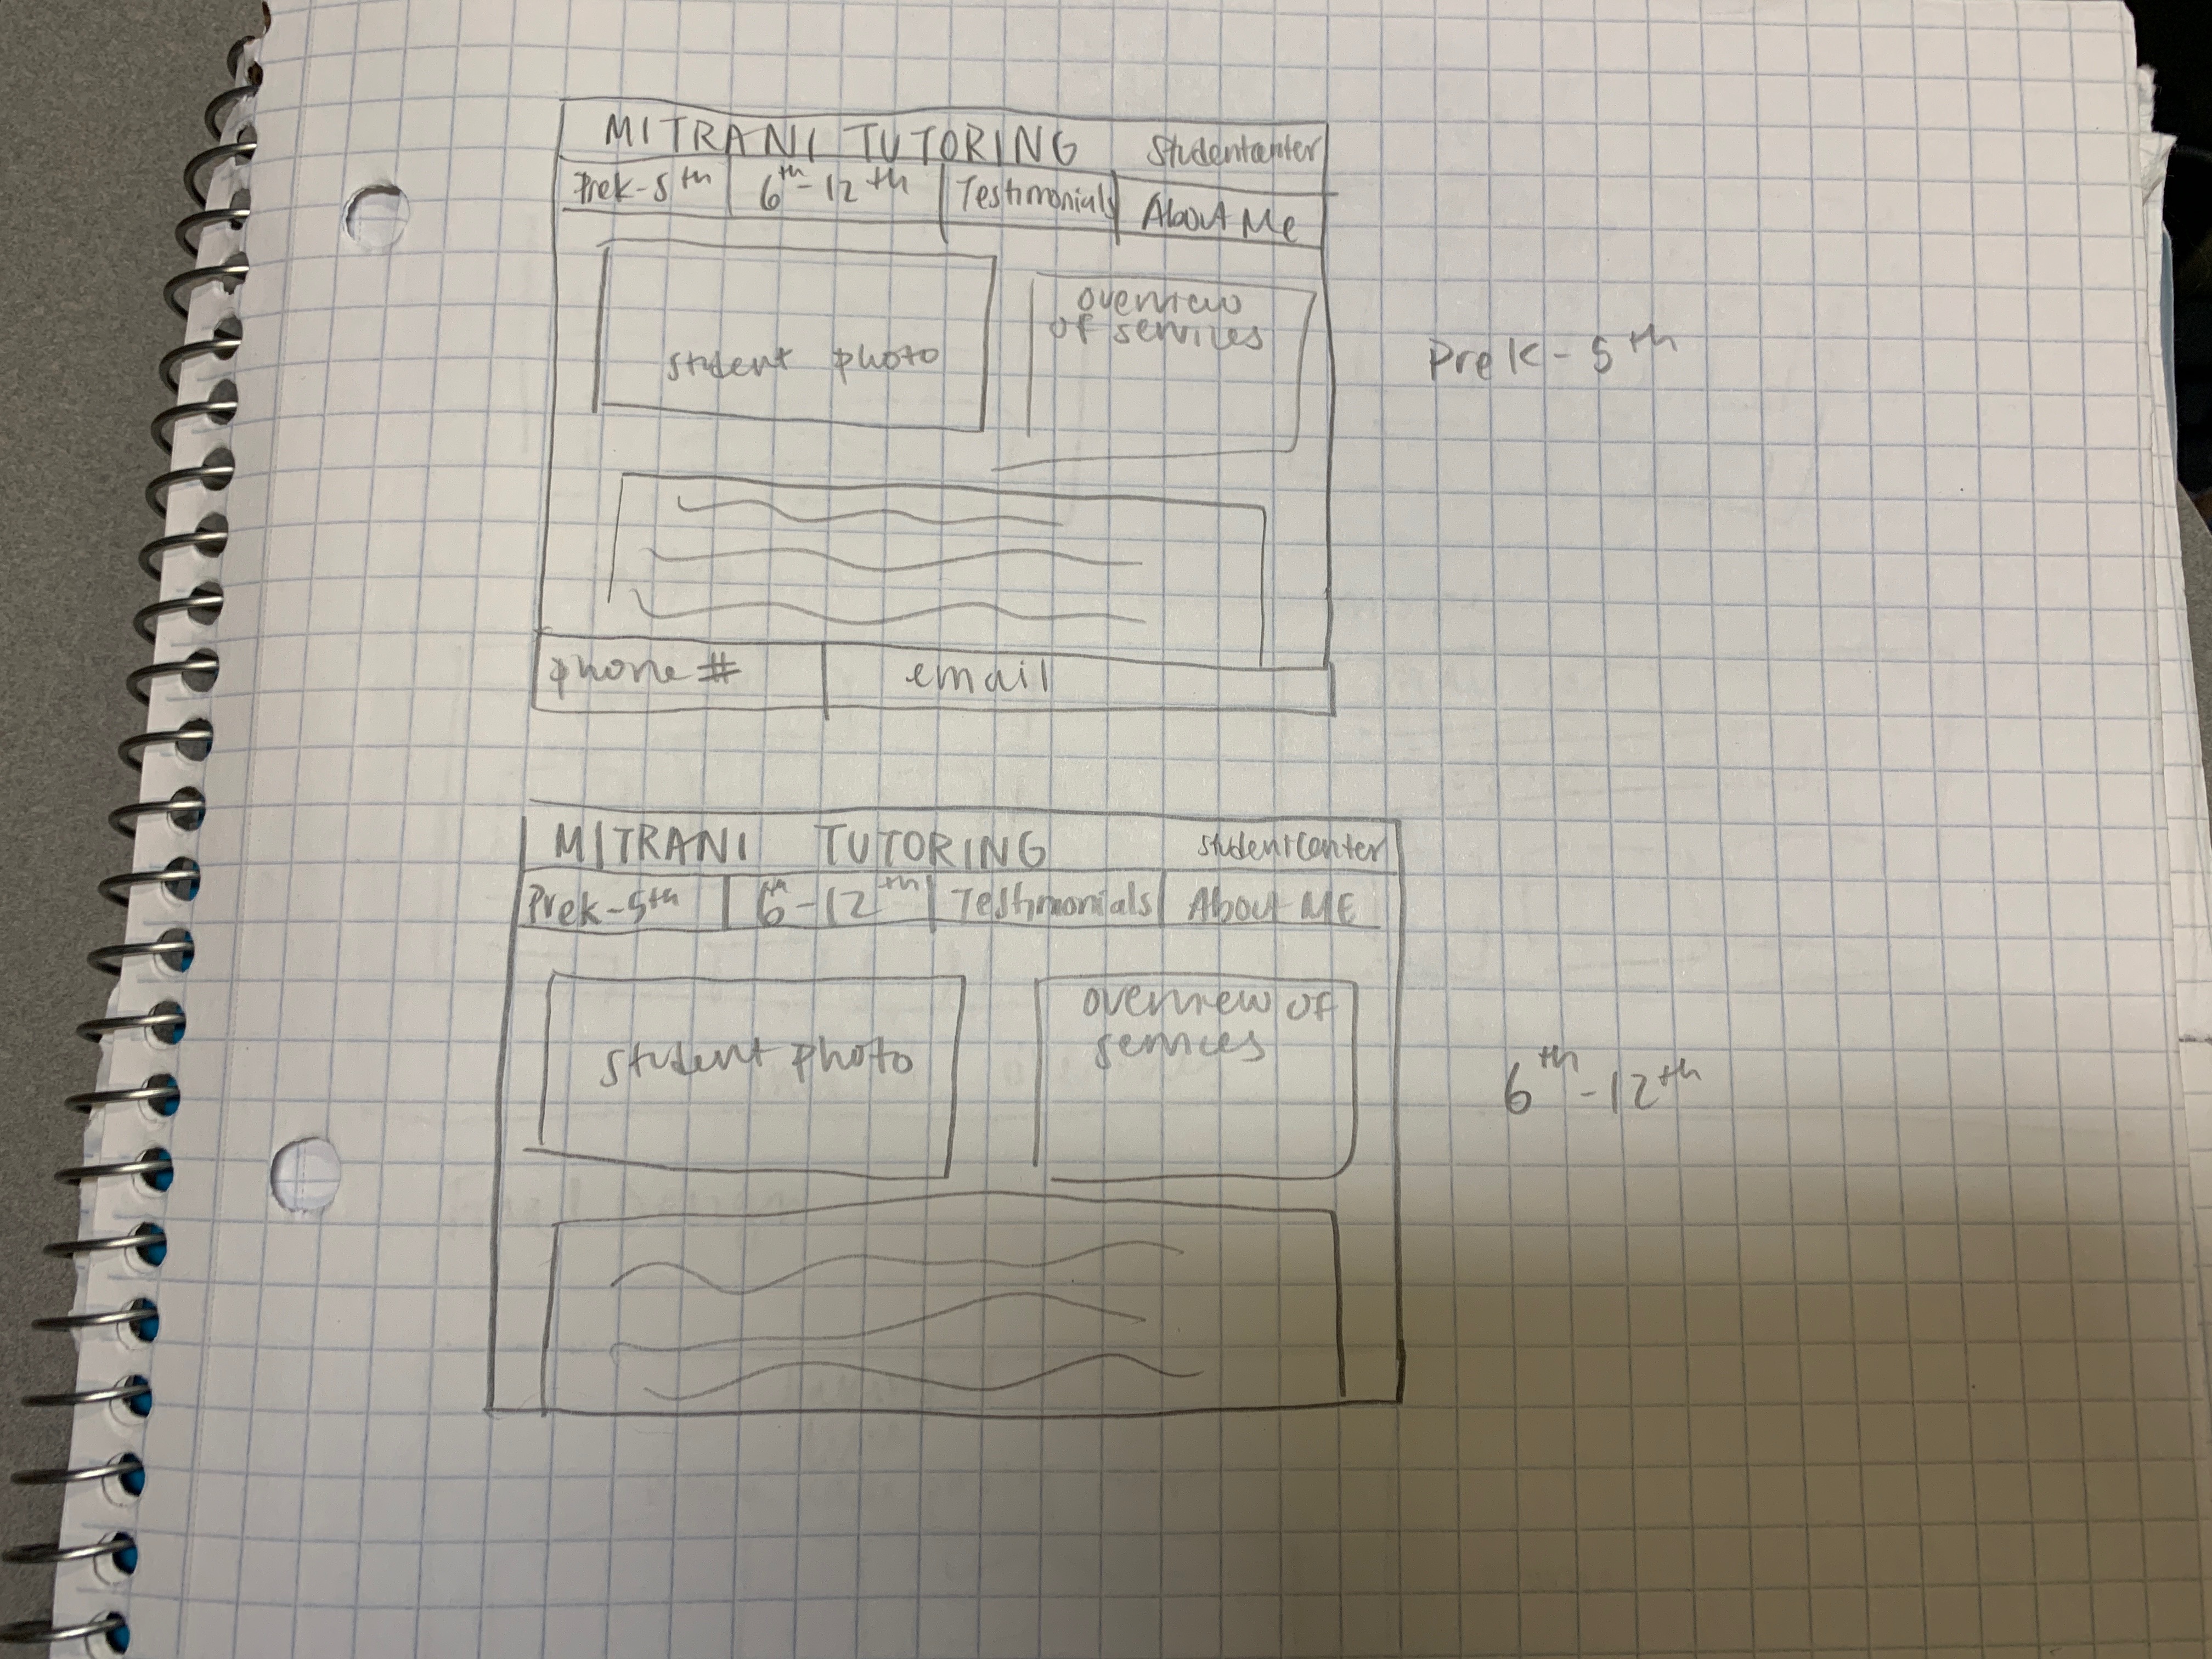 MITRANI TUTORING Studentcenter
Prek-5th 6th-12th Testimonials About Me
student photo
overview
of services
Pre K-5th
phone # email
MITRANI TUTORING StudentCenter
Prek-5th 6th-12th Testimonials About ME
student photo
overview of
services
6th-12th